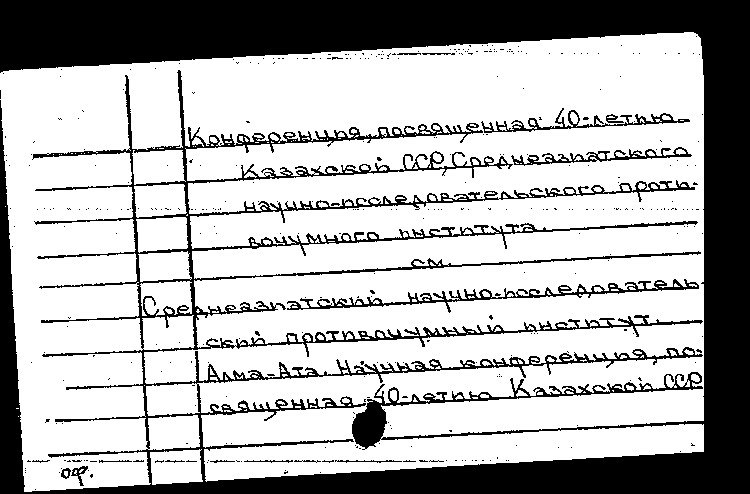 Конференция, посвященная 40-летию
Казахской ССР, Среднеазиатского
научно-исследовательского проти-
вочумного института.
см.
Среднеазиатский научно-исследователь-
ский противочумный институт.
Алма-Ата. Научная конференция, по-
священная 40-летию Казахской ССР
оф.